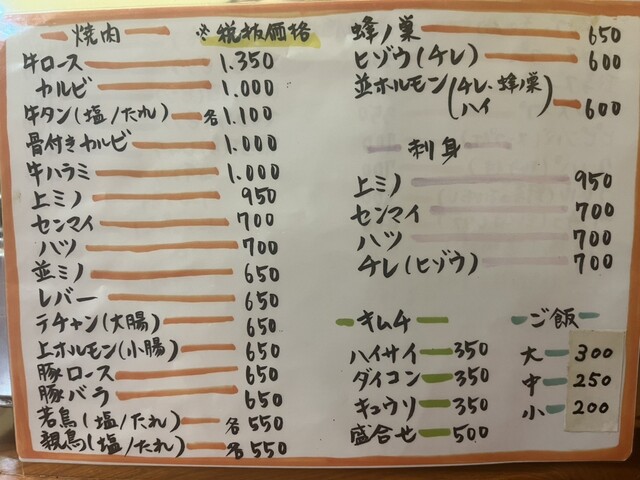 焼肉 ※税抜価格
牛ロース 1.350
カルビ 1.000
牛タン(塩/たれ) 各1.100
骨付きカルビ 1.000
牛ハラミ 1.000
上ミノ 950
センマイ 700
ハツ 700
並ミノ 650
レバー 650
テチャン(大腸) 650
上ホルモン(小腸) 650
豚ロース 650
豚バラ 650
若鳥(塩/たれ) 各550
親鳥(塩/たれ) 各550
蜂ノ巣 650
ヒゾウ(チレ) 600
並ホルモン(チレ、蜂ノ巣
ハイ) 600
刺身
上ミノ 950
センマイ 700
ハツ 700
チレ(ヒゾウ) 700
キムチ
ハイサイ 350
ダイコン 350
キュウリ 350
盛合せ 500
ご飯
大 300
中 250
小 200